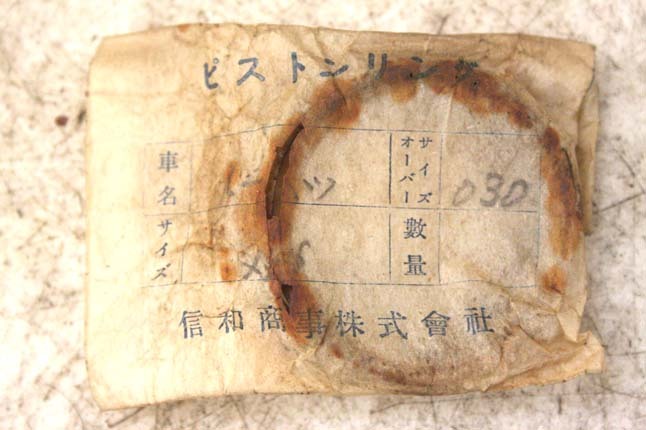 ピストンリング
車名
オーバーサイズ 030
サイズ
數量
信和商事株式會社